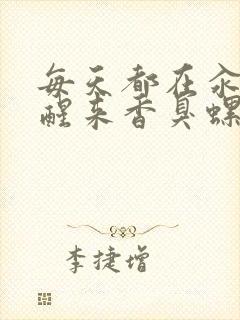 每天都在汆
醒来香臭螺
李捷增